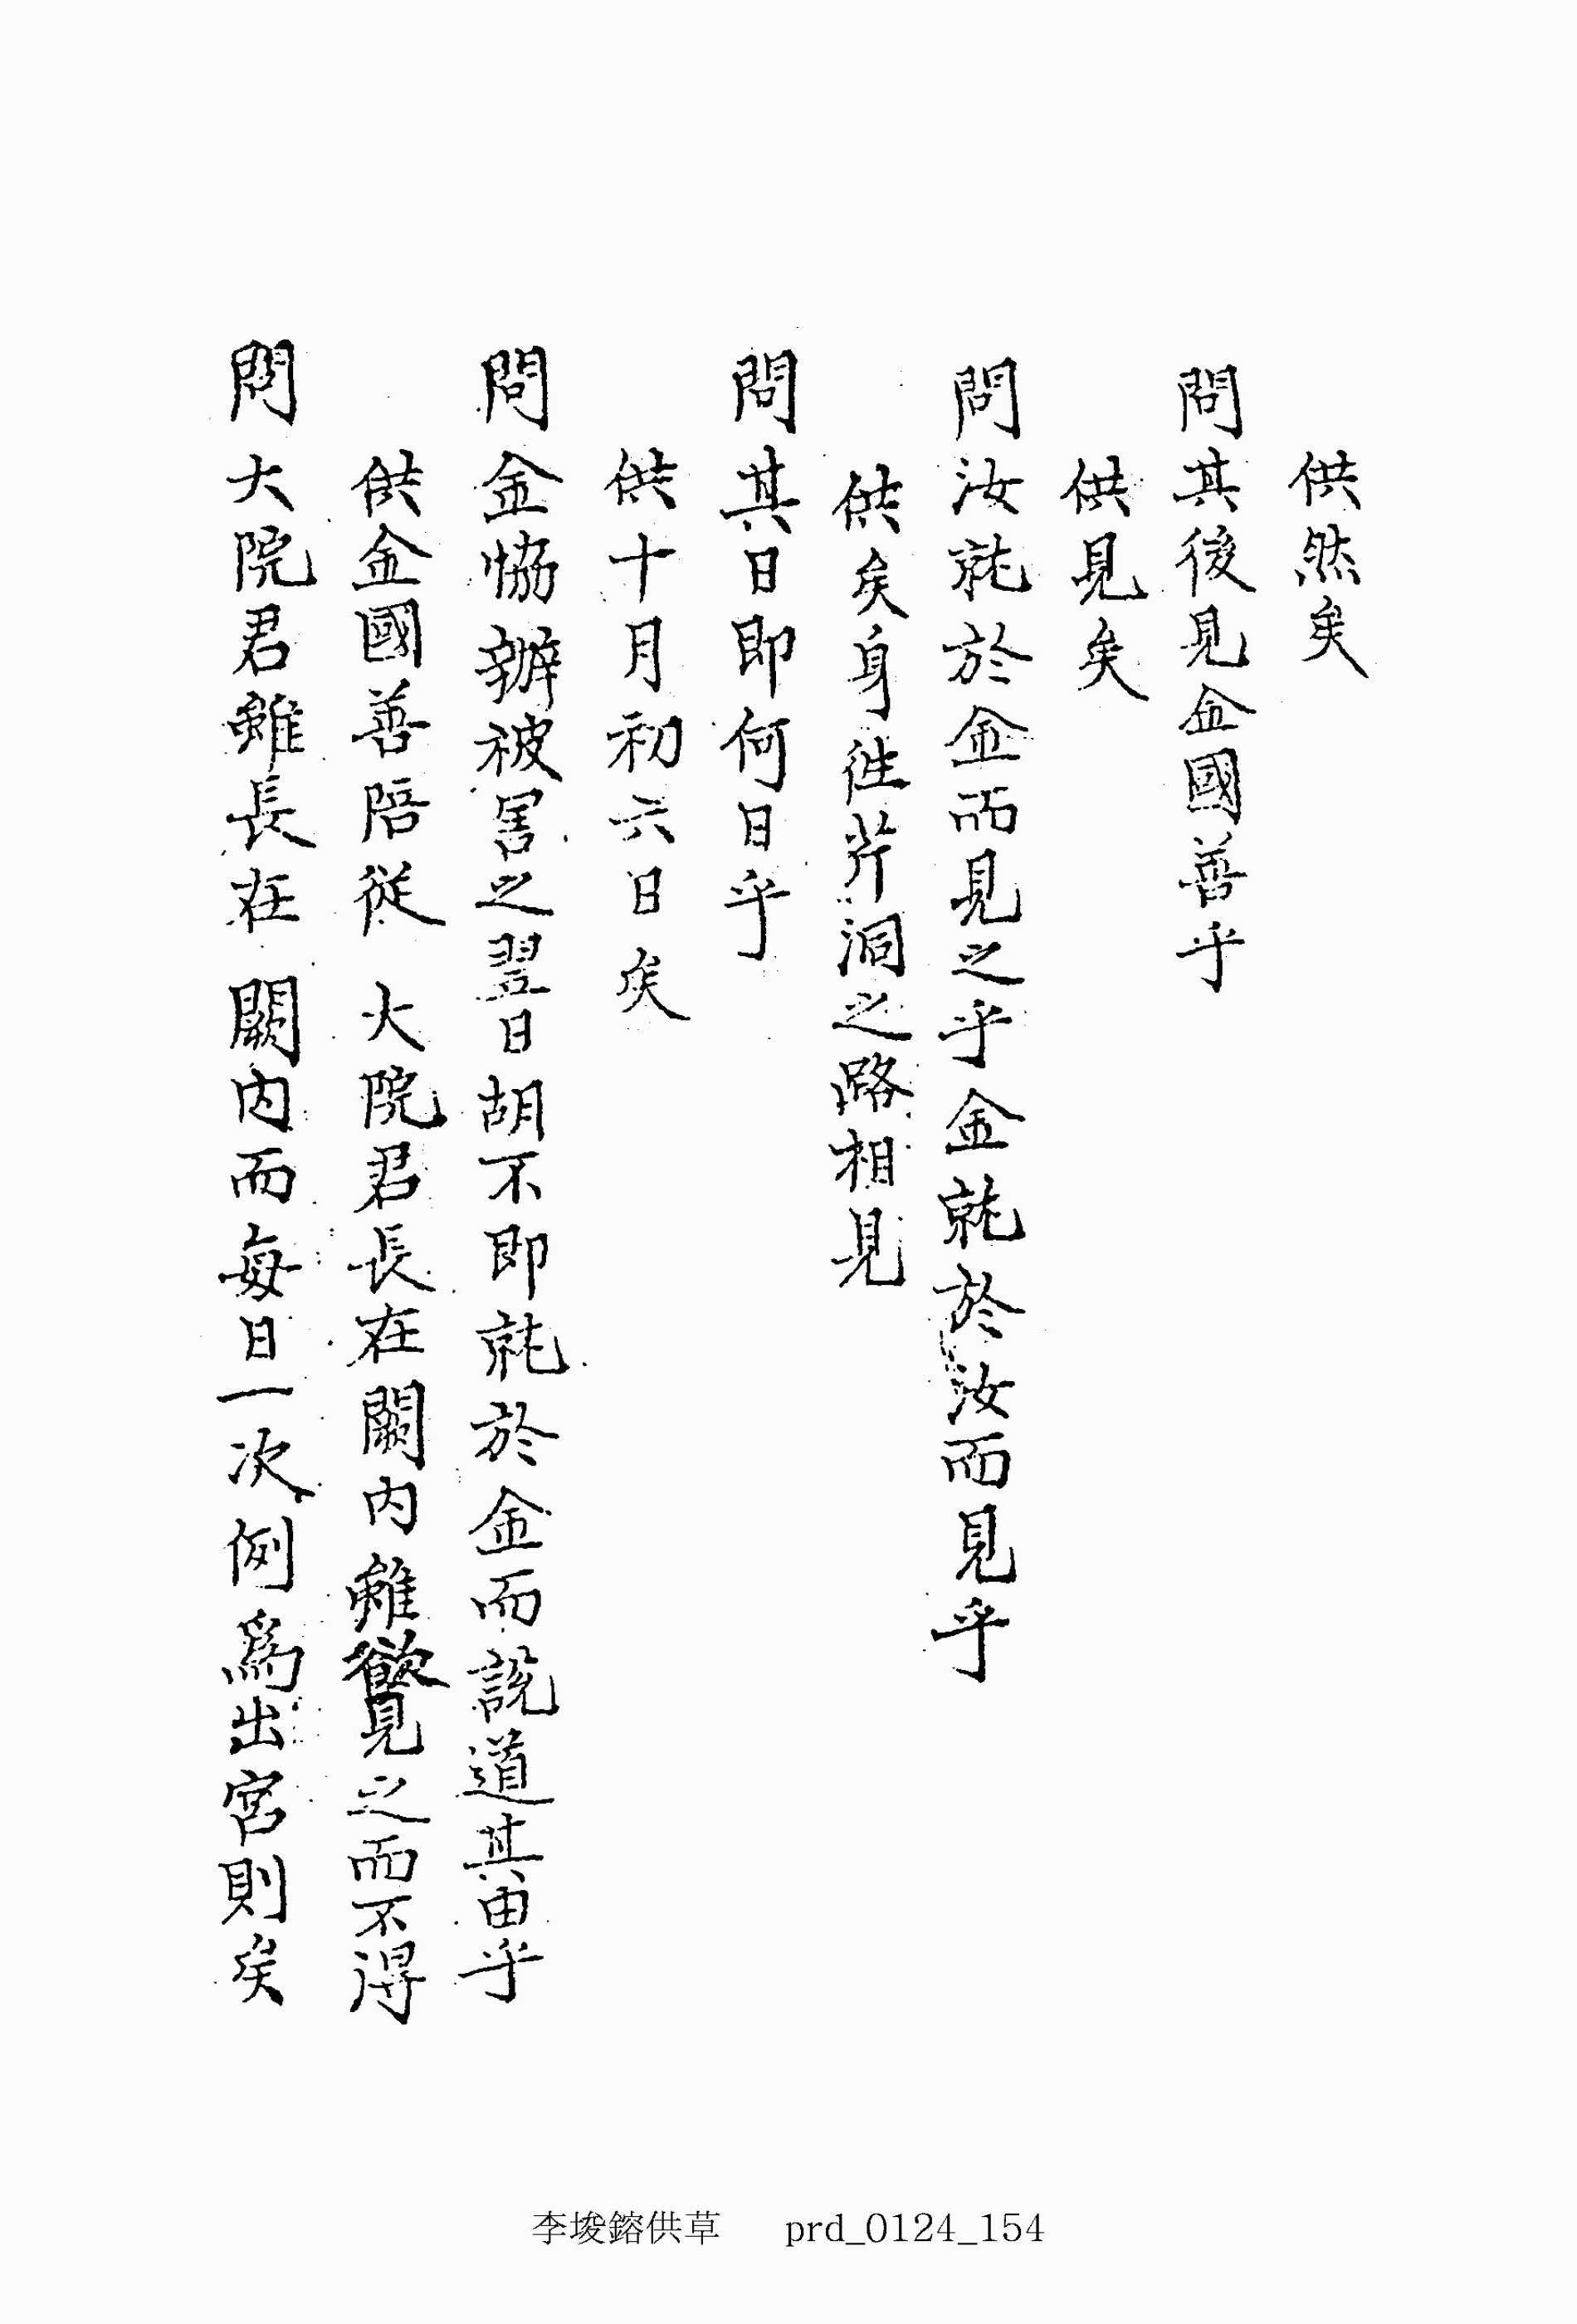 供然矣
問其後見金國善乎
供見矣
問汝就於金而見之乎金就於汝而見乎
供矣身徃芹洞之路相見
問其日即何日乎
供十月初六日矣
問金恊辦被害之翌日胡不即就於金而說道其由乎
供金國善陪從 大院君長在闕內雖欲見之而不得
問大院君雖長在 闕內而每日一次例爲出宮則矣
李埈鎔供草 prd_0124_154